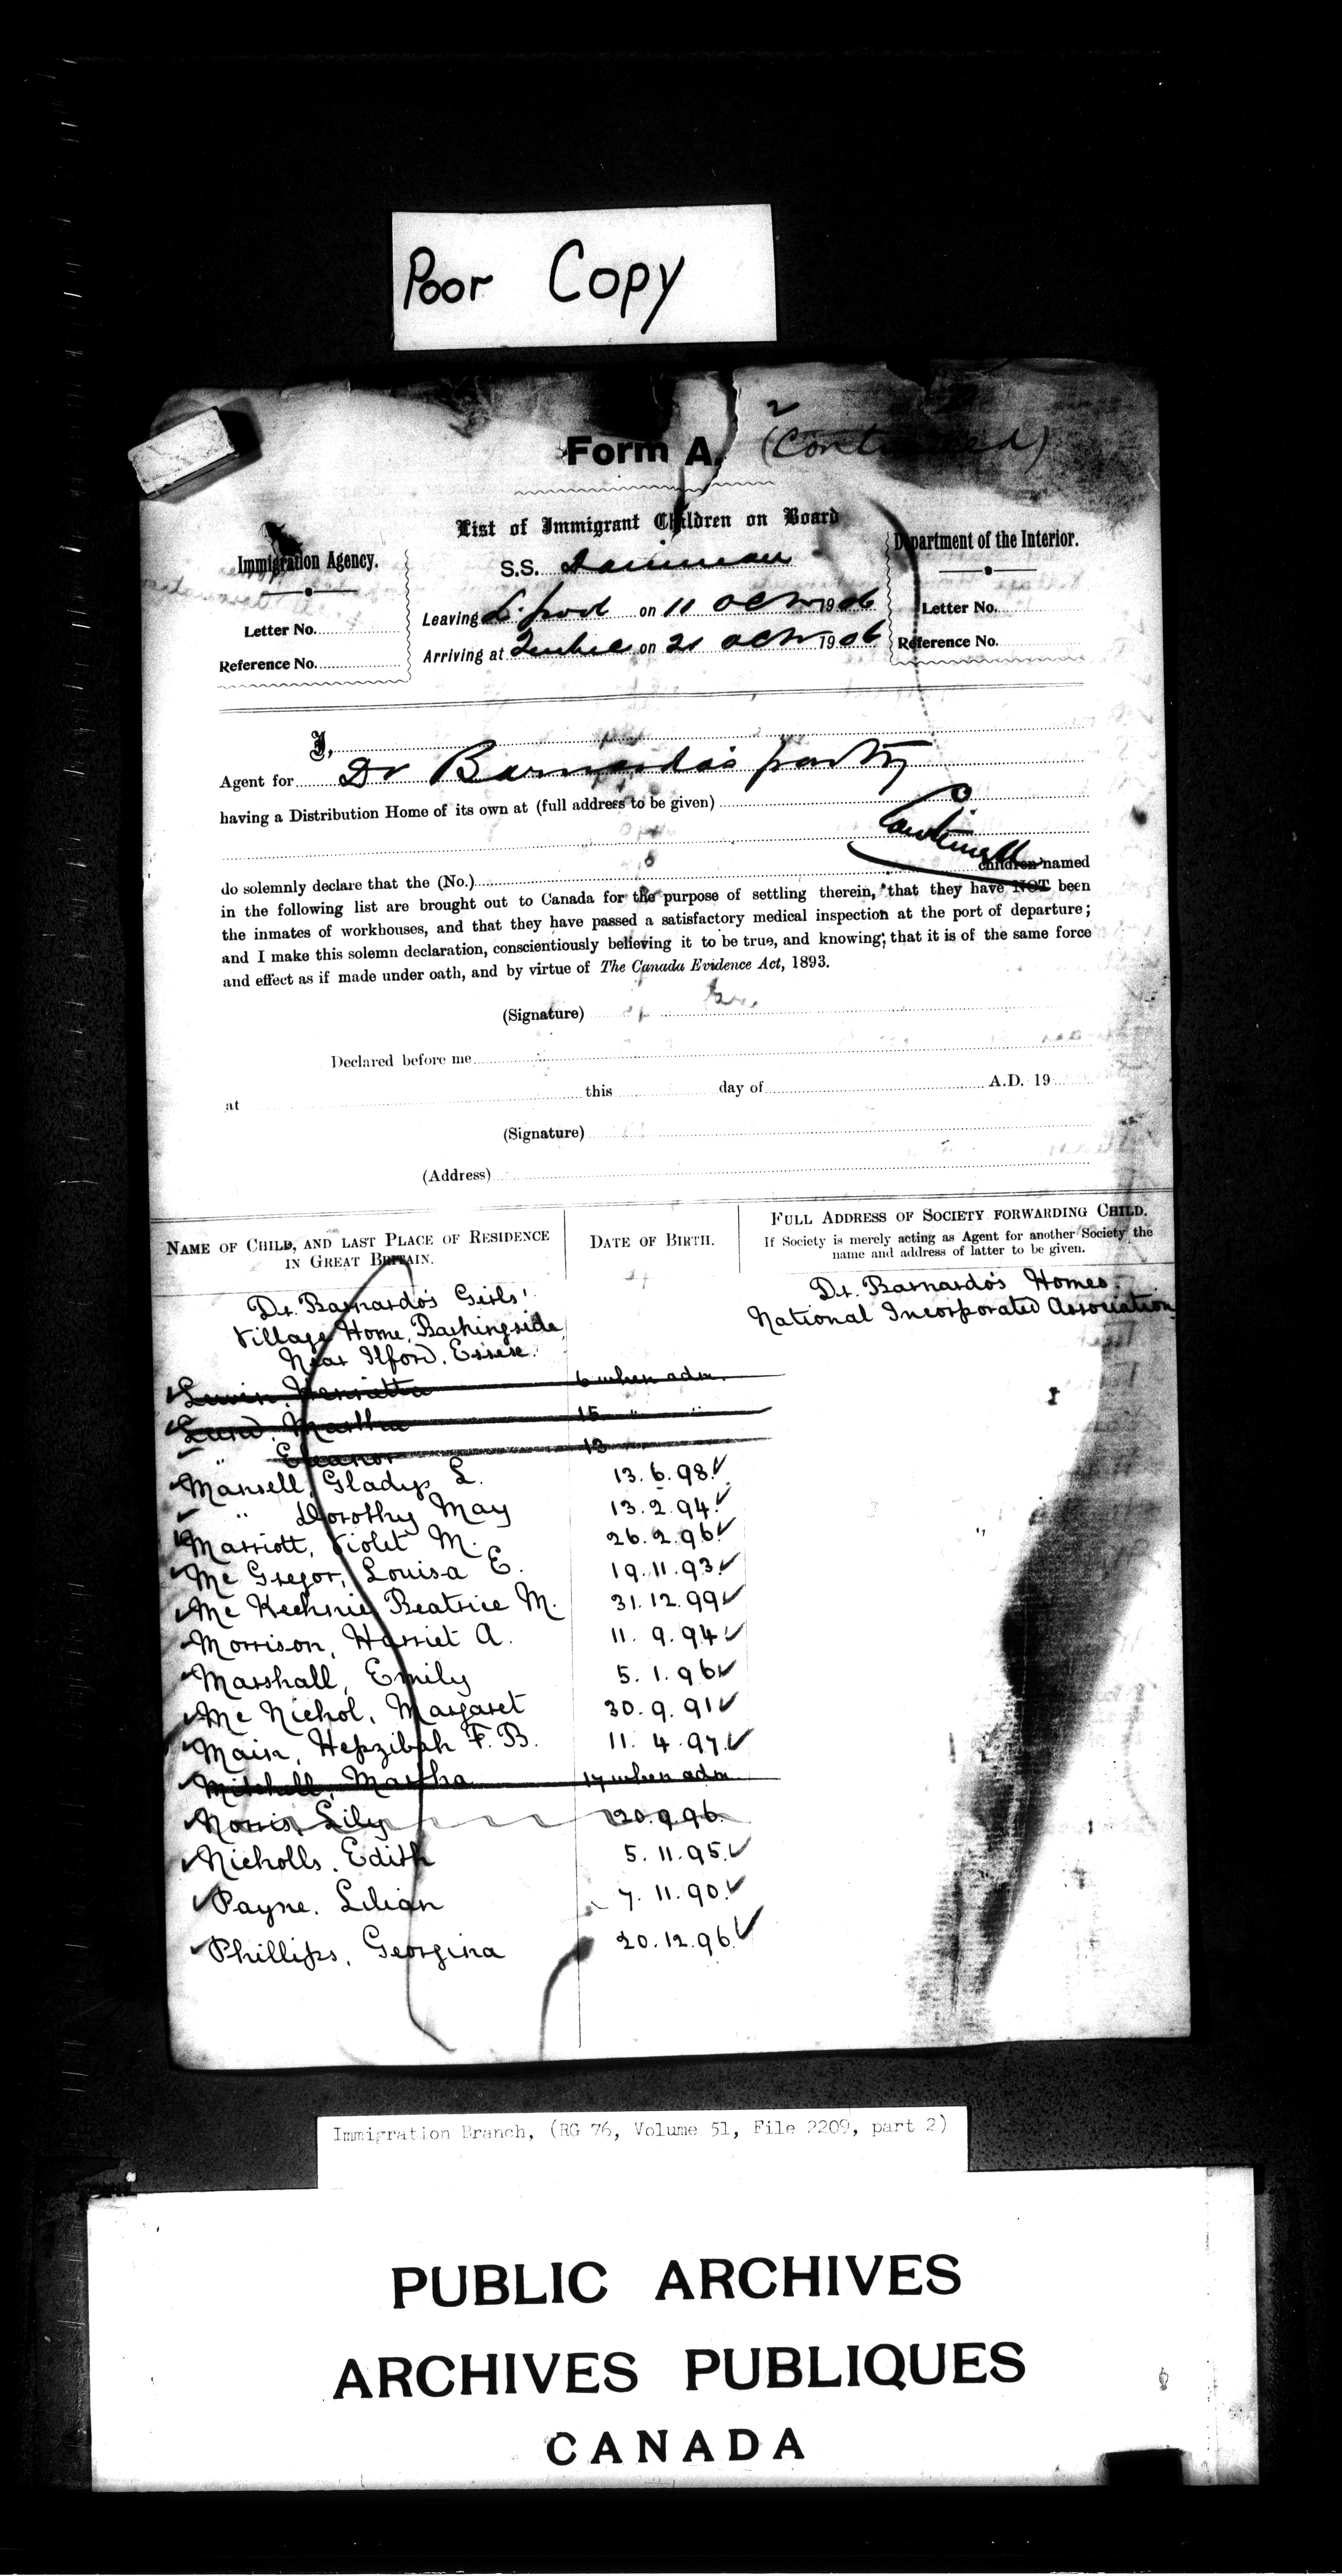 Poor Copy
2
Form A. (Continued)
List of Immigrant Children on Board
Immigration Agency.
Department of the Interior.
S.S.
Letter No.
Leaving L'pool on 11 Octr 1906
Letter No.
Reference No.
Arriving at Quebec on 21 Octr 1906
Reference No.
I,
Agent for Dr Barnardo's party
having a Distribution Home of its own at (full address to be given)
Continued
do solemnly declare that the (No.) children named
in the following list are brought out to Canada for the purpose of settling therein, that they have NOT been
the inmates of workhouses, and that they have passed a satisfactory medical inspection at the port of departure;
and I make this solemn declaration, conscientiously believing it to be true, and knowing that it is of the same force
and effect as if made under oath, and by virtue of The Canada Evidence Act, 1893.
(Signature)
Declared before me
at this day of A.D. 19
(Signature)
(Address)
NAME OF CHILD, AND LAST PLACE OF RESIDENCE IN GREAT BRITAIN.
DATE OF BIRTH.
FULL ADDRESS OF SOCIETY FORWARDING CHILD.
If Society is merely acting as Agent for another Society the name and address of latter to be given.
Dr. Barnardo's Girls'
Village Home, Barkingside,
Near Ilford. Essex.
Dr. Barnardo's Homes.
National Incorporated Association
Henrietta 6 when adm.
Lund, Martha 15 " "
" Eleanor 13
Mansell, Gladys L. 13.6.98.
" Dorothy May 13.2.94.
Marriott, Violet M. 26.2.96
Mc Gregor, Louisa E. 19.11.93
Mc Kechnie, Beatrice M. 31.12.99
Morrison, Harriet A. 11.9.94
Marshall, Emily 5.1.96
Mc Nichol, Margaret 30.9.91
Main, Hepzibah F. B. 11.4.97.
Mitchell, Martha 17 when adm.
Norris, Lily 20.9.96.
Nicholls, Edith 5.11.95.
Payne, Lilian 7.11.90.
Phillips, Georgina 20.12.96.
Immigration Branch, (RG 76, Volume 51, File 2209, part 2)
PUBLIC ARCHIVES
ARCHIVES PUBLIQUES
CANADA